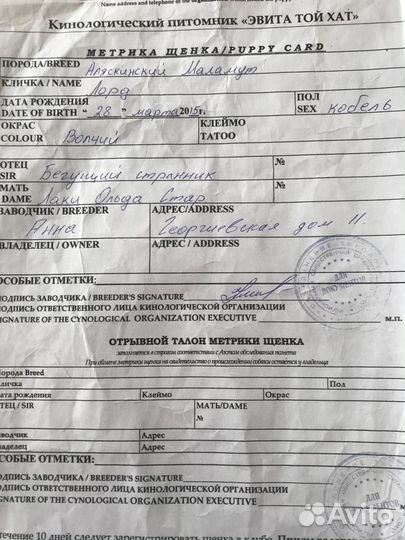 Name address and telephone of the organization
Кинологический питомник «ЭВИТА ТОЙ ХАТ»
МЕТРИКА ЩЕНКА/PUPPY CARD
ПОРОДА/BREED Аляскинский Маламут
КЛИЧКА / NAME Лорд
ДАТА РОЖДЕНИЯ ПОЛ
DATE OF BIRTH “ 28 ” марта 2015г. SEX кобель
ОКРАС КЛЕЙМО
COLOUR Волчий TATOO
ОТЕЦ №
SIR Бегущий странник
МАТЬ №
DAME Лаки Ольда Стар
ЗАВОДЧИК / BREEDER АДРЕС/ADDRESS
Анна Георгиевская дом 11
ВЛАДЕЛЕЦ / OWNER АДРЕС / ADDRESS
ОСОБЫЕ ОТМЕТКИ:
ПОДПИСЬ ЗАВОДЧИКА / BREEDER'S SIGNATURE
ПОДПИСЬ ОТВЕТСТВЕННОГО ЛИЦА КИНОЛОГИЧЕСКОЙ ОРГАНИЗАЦИИ
SIGNATURE OF THE CYNOLOGICAL ORGANIZATION EXECUTIVE М.П.
ДЛЯ ДОКУМЕНТОВ
ОТРЫВНОЙ ТАЛОН МЕТРИКИ ЩЕНКА
заполняется в строгом соответствии с Актом обследования помета
При обмене метрики щенка на свидетельство о происхождении собаки остается у владельца
Порода Breed
Кличка Пол
Дата рождения Клеймо Окрас
ОТЕЦ / SIR МАТЬ/DAME
№
Заводчик Адрес
Владелец Адрес
ОСОБЫЕ ОТМЕТКИ:
ПОДПИСЬ ЗАВОДЧИКА / BREEDER'S SIGNATURE
ПОДПИСЬ ОТВЕТСТВЕННОГО ЛИЦА КИНОЛОГИЧЕСКОЙ ОРГАНИЗАЦИИ
SIGNATURE OF THE CYNOLOGICAL ORGANIZATION EXECUTIVE
ДЛЯ
Avito
течение 10 дней следует зарегистрировать щенка в клубе.